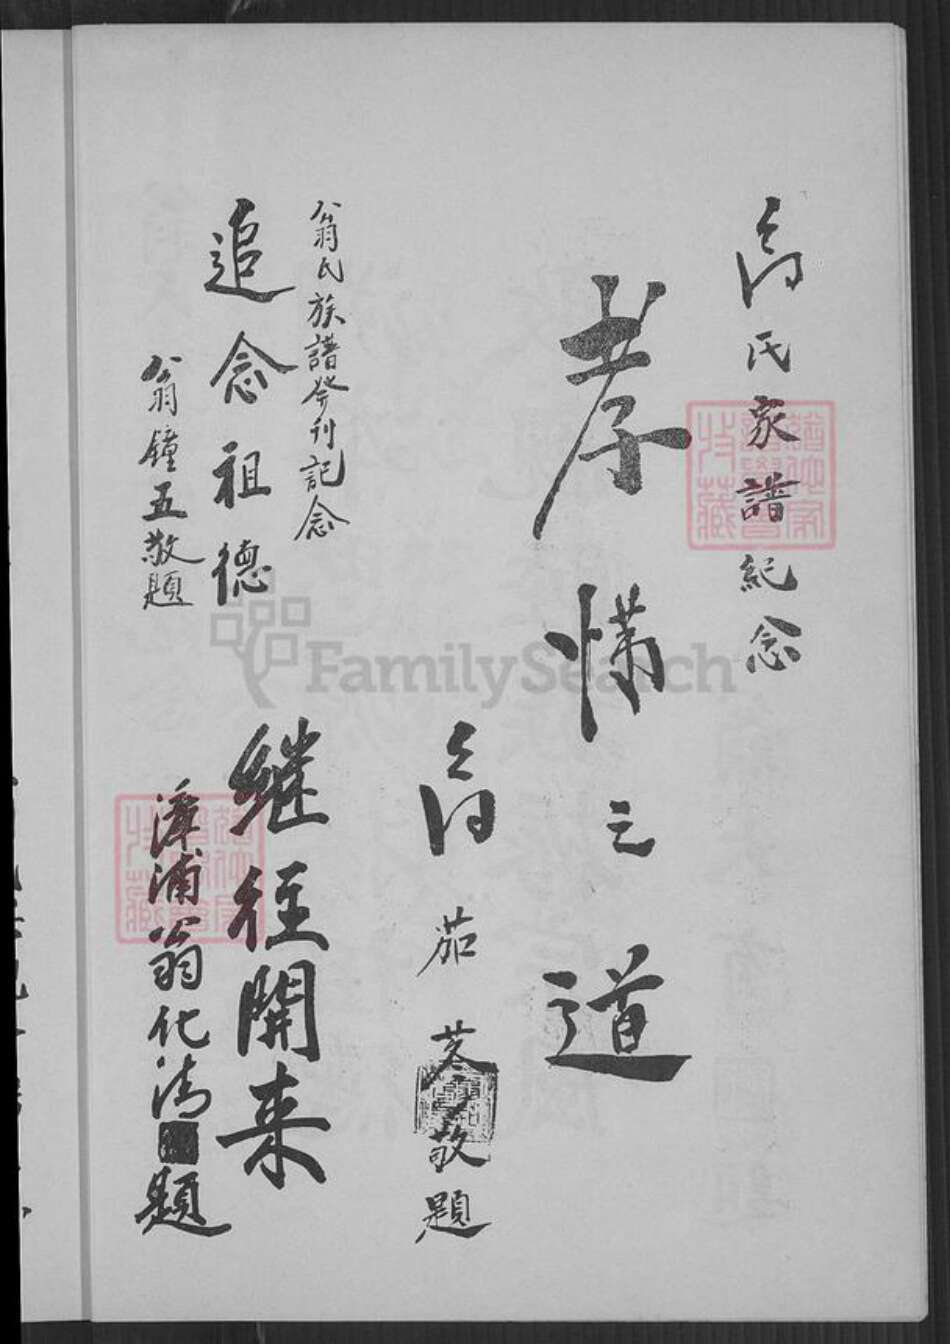 翁氏家譜紀念
孝悌之道
翁茄苳敬題
翁氏族譜發刊記念
追念祖德
翁鐘五敬題
継往開来
漳浦翁化清題
FamilySearch